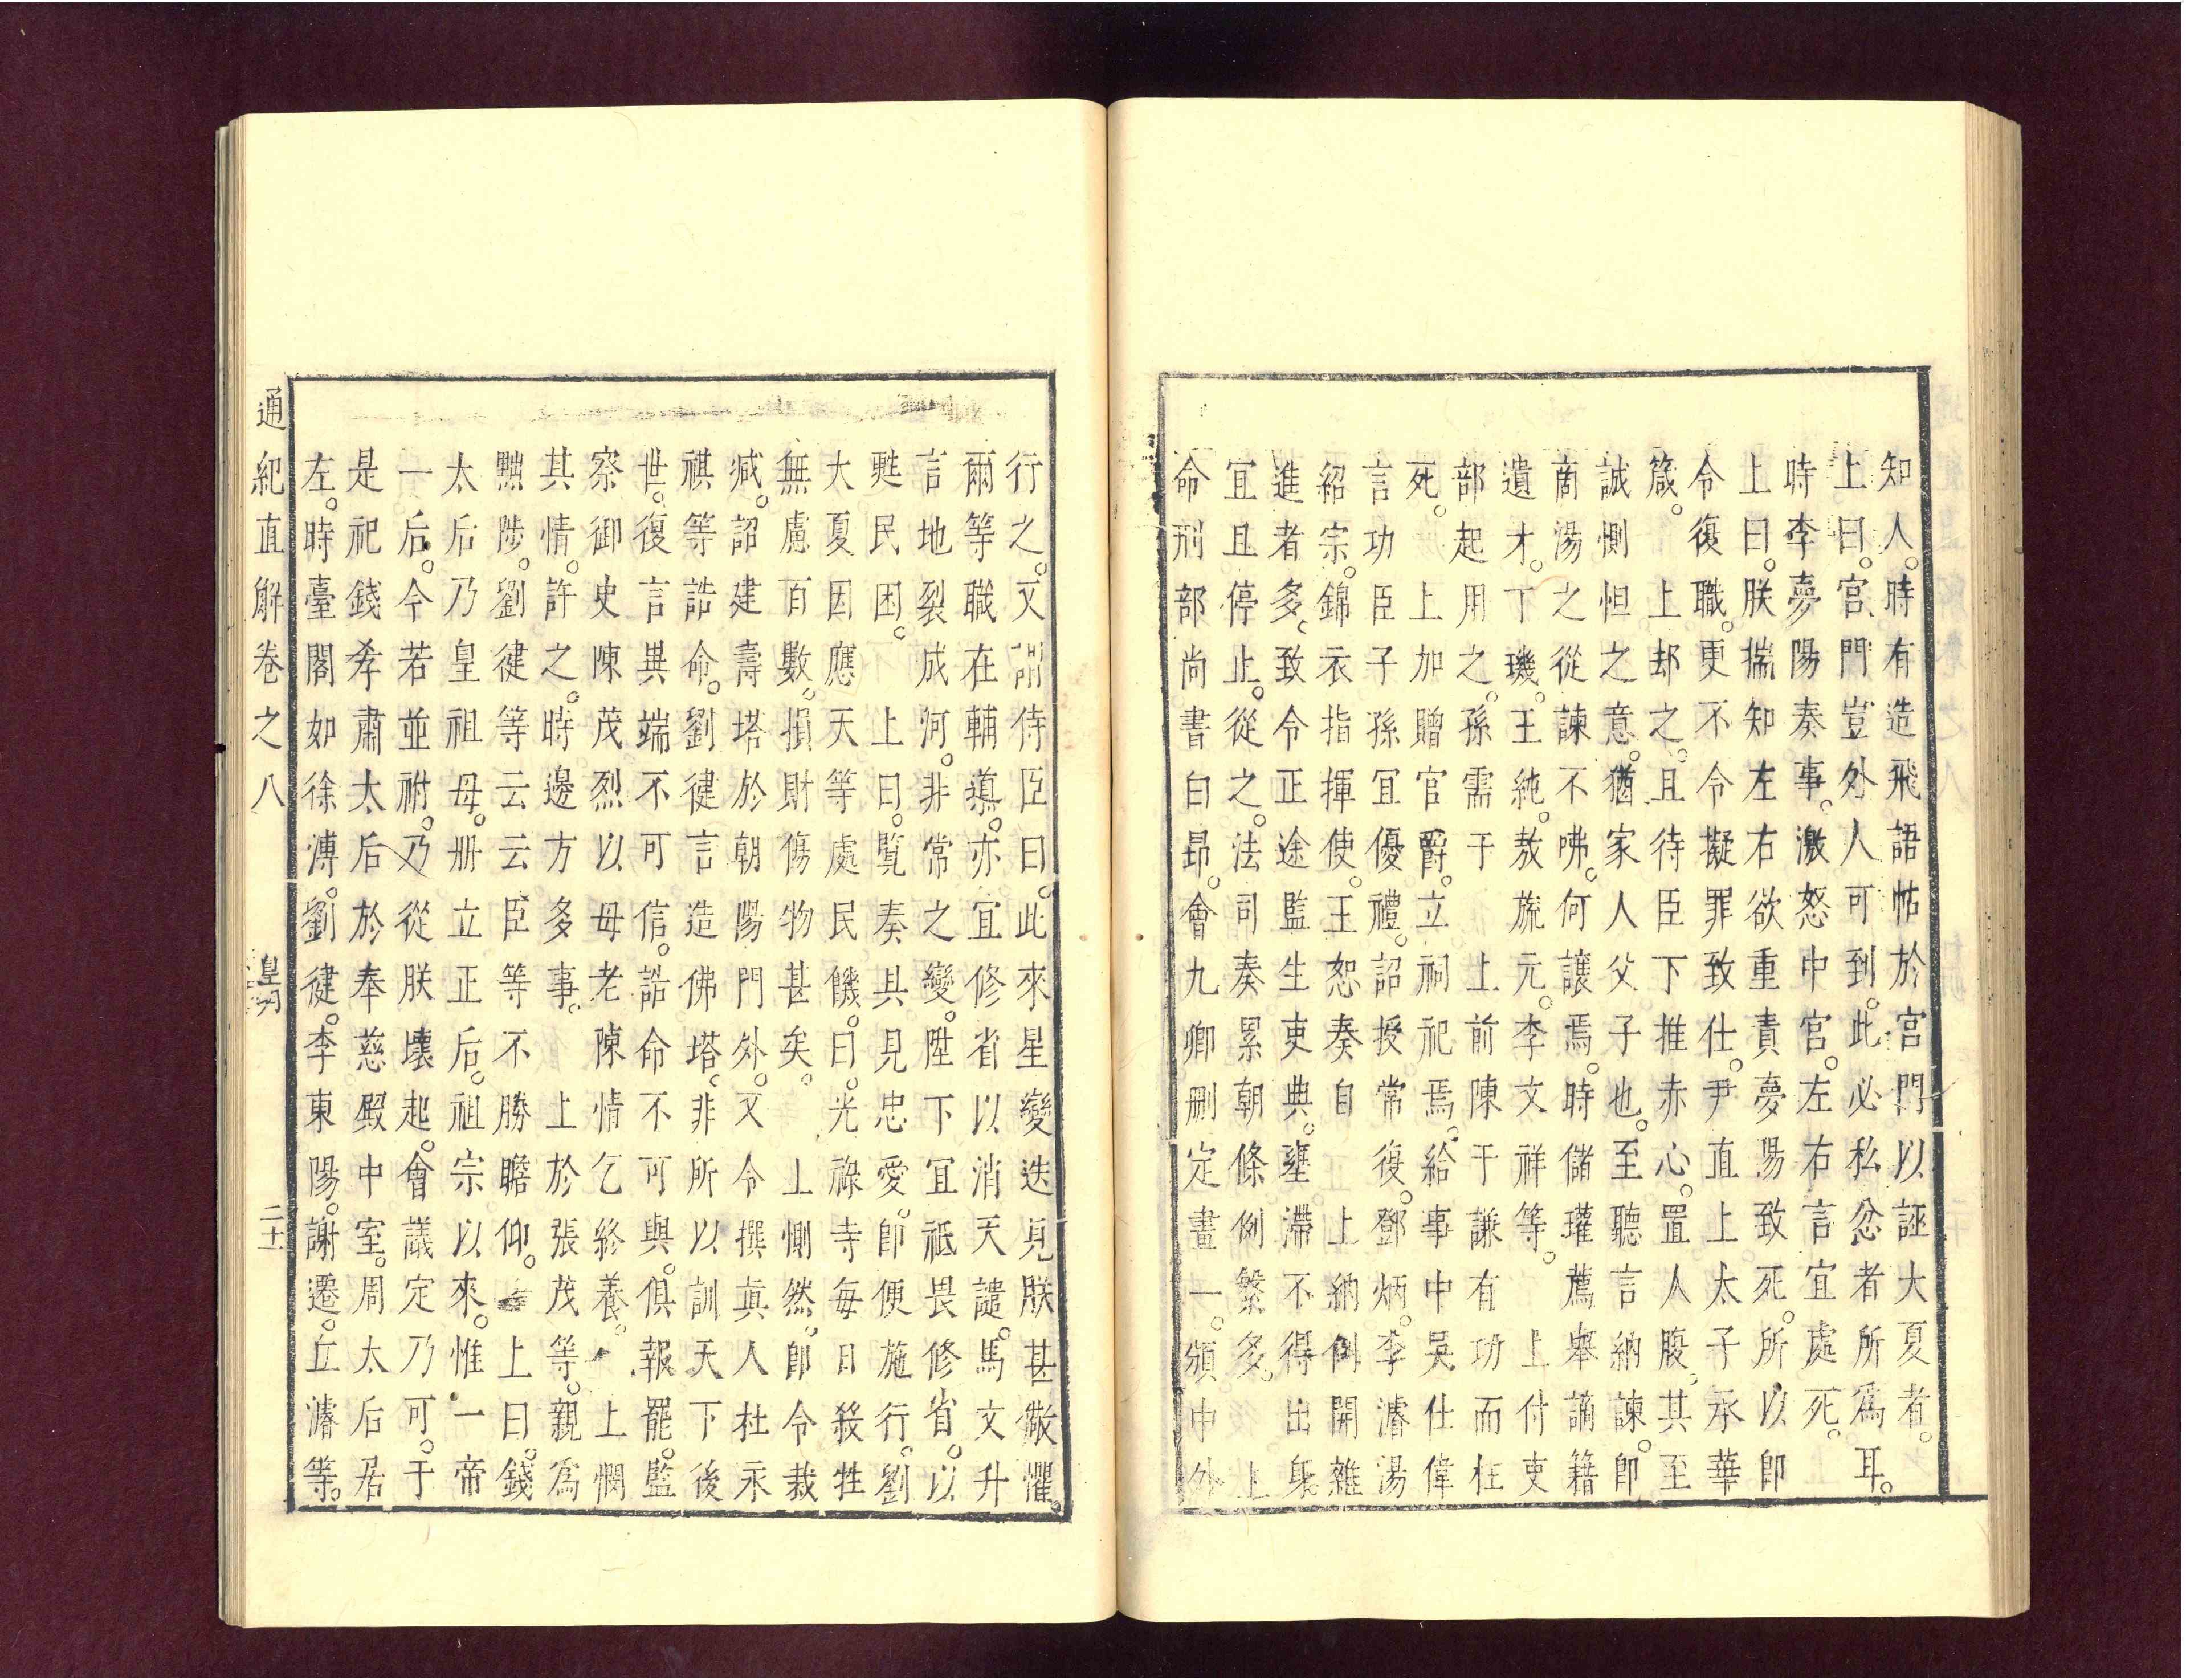 知人。時有造飛語帖於宮門以誣大夏者。
上曰。宮門豈外人可到。此必私忿者所爲耳。
時李夢陽奏事。激怒中宮。左右言宜處死。
上曰。朕揣知左右欲重責夢陽致死。所以卽
令復職。更不令擬罪致仕。尹直上太子承華
箴。上却之。且待臣下推赤心。置人腹。其至
誠惻怛之意。猶家人父子也。至聽言納諫。卽
商湯之從諫不咈。何讓焉。時儲瓘薦舉謫籍
遺才。丁璣。王純。敖旒元。李文祥等。上付吏
部起用之。孫需于上前陳于謙有功而枉
死。上加贈官爵。立祠祀焉。給事中吳仕偉
言功臣子孫宜優禮。詔授常復。鄧炳。李濬湯
紹宗。錦衣指揮使。王恕奏自上納例開雜
進者多。致令正途監生吏典。壅滯不得出身
宜且停止。從之。法司奏累朝條例繁多。上
命刑部尚書白昂。會九卿刪定畫一。頒中外
行之。又謂侍臣曰。此來星變迭見朕甚儆懼。
爾等職在輔導。亦宜修省以消天譴。馬文升
言地裂成河。非常之變。陞下宜祗畏修省。以
甦民困。上曰。覽奏具見忠愛。卽便施行。劉
大夏因應天等處民饑。曰。光祿寺每日殺牲
無慮百數。損財傷物甚矣。上惻然。卽令裁
減。詔建壽塔於朝陽門外。又令撰眞人杜永
祺等誥命。劉健言造佛塔。非所以訓天下後
世。復言異端不可信。誥命不可與。俱報罷。監
察御史陳茂烈以母老陳情乞終養。上憫
其情。許之。時邊方多事。上於張茂等。親爲
黜陟。劉健等云云臣等不勝瞻仰。上曰。錢
太后乃皇祖母。册立正后。祖宗以來。惟一帝
一后。今若並祔。乃從朕壞起。會議定乃可。于
是祀錢孝肅太后於奉慈殿中室。周太后居
左。時臺閣如徐溥。劉健。李東陽。謝遷。丘濬等。
通紀直解卷之八 皇明 二十一